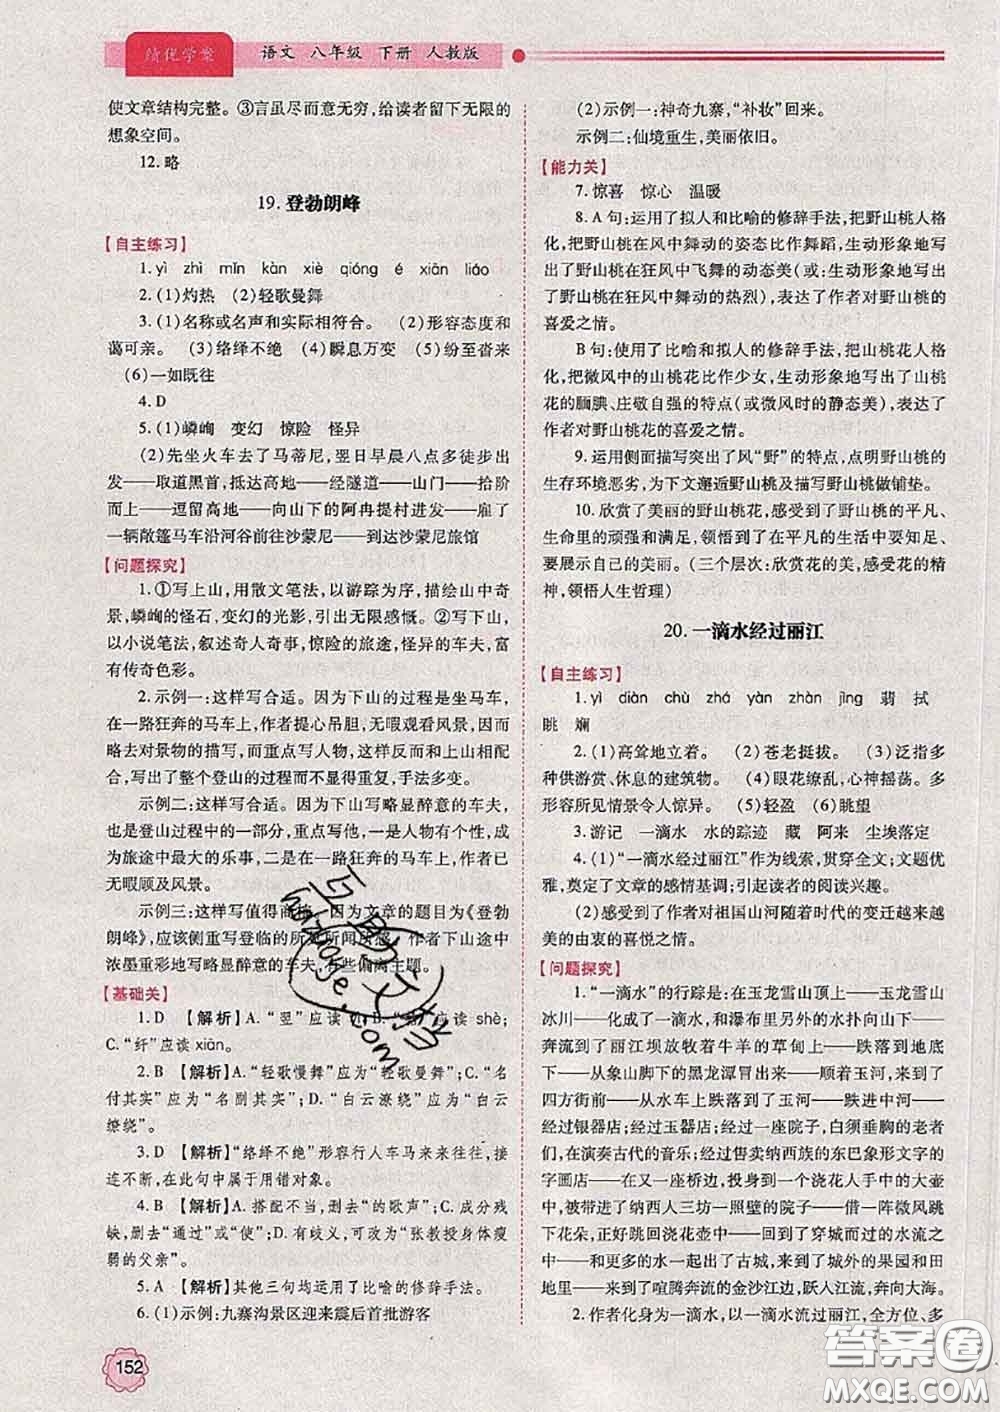 绩优学案 语文 八年级 下册 人教版
使文章结构完整。③言虽尽而意无穷,给读者留下无限的
想象空间。
12.略
19.登勃朗峰
【自主练习】
1.yì zhì mǐn kàn xiè qióng é xiān liáo
2.(1)灼热 (2)轻歌曼舞
3.(1)名称或名声和实际相符合。 (2)形容态度和
蔼可亲。 (3)络绎不绝 (4)瞬息万变 (5)纷至沓来
(6)一如既往
4.D
5.(1)嶙峋 变幻 惊险 怪异
(2)先坐火车去了马蒂尼,翌日早晨八点多徒步出
发——取道黑首,抵达高地——经隧道——山门——拾阶
而上——逗留高地——向山下的阿冉提村进发——雇了
一辆敞篷马车沿河谷前往沙蒙尼——到达沙蒙尼旅馆
【问题探究】
1.①写上山,用散文笔法,以游踪为序,描绘山中奇
景,嶙峋的怪石,变幻的光影,引出无限感慨。②写下山,
以小说笔法,叙述奇人奇事,惊险的旅途,怪异的车夫,富
有传奇色彩。
2.示例一:这样写合适。因为下山的过程是坐马车,
在一路狂奔的马车上,作者提心吊胆,无暇观看风景,因而
略去对景物的描写,而重点写人物,这样和上山相配合,
写出了整个登山的过程但不显得重复,手法多变。
示例二:这样写合适。因为下山写略显醉意的车夫,
也是登山过程中的一部分,重点写他,一是人物有个性,
成为旅途中最大的乐事,二是在一路狂奔的马车上,作者已
无暇顾及风景。
示例三:这样写值得商榷。因为文章的题目为《登勃
朗峰》,应该侧重写登临的所见所闻所感。作者下山途中
浓墨重彩地写略显醉意的车夫,有些偏离主题。
【基础关】
1.D 【解析】A.“翌”应读 yì;B. 应读 shè;
C.“纤”应读 xiān。
2.B 【解析】A.“轻歌慢舞”应为“轻歌曼舞”;C.“名
付其实”应为“名副其实”;D.“白云潦绕”应为“白云
缭绕”。
3.D 【解析】“络绎不绝”形容行人车马来来往往,连
续不断,在此句中属于用错对象。
4.B 【解析】A.搭配不当,删去“的歌声”;C.成分残
缺,删去“通过”或“使”;D.有歧义,可改为“张教授身体瘦
弱的父亲”。
5.A 【解析】其他三句均运用了比喻的修辞手法。
6.(1)示例:九寨沟景区迎来震后首批游客
(2)示例一:神奇九寨,“补妆”回来。
示例二:仙境重生,美丽依旧。
【能力关】
7.惊喜 惊心 温暖
8.A句:运用了拟人和比喻的修辞手法,把野山桃人格
化,把野山桃在风中舞动的姿态比作舞蹈,生动形象地写
出了野山桃在狂风中飞舞的动态美(或:生动形象地写出
了野山桃在狂风中舞动的热烈),表达了作者对野山桃的
喜爱之情。
B句:使用了比喻和拟人的修辞手法,把山桃花人格
化,把微风中的山桃花比作少女,生动形象地写出了山桃
花的腼腆、庄敬自强的特点(或微风时的静态美),表达了
作者对野山桃花的喜爱之情。
9.运用侧面描写突出了风“野”的特点,点明野山桃的
生存环境恶劣,为下文邂逅野山桃及描写野山桃做铺垫。
10.欣赏了美丽的野山桃花,感受到了野山桃的平凡、
生命里的顽强和满足,领悟到了在平凡的生活中要知足、
要发现自己的美丽。(三个层次:欣赏花的美,感受花的精
神,领悟人生哲理)
20.一滴水经过丽江
【自主练习】
1.yì diàn chù zhá yàn zhàn jìng 翡 拭
眺 斓
2.(1)高耸地立着。 (2)苍老挺拔。 (3)泛指许
多种供游赏、休息的建筑物。 (4)眼花缭乱,心神摇荡。多
形容所见情景令人惊异。 (5)轻盈 (6)眺望
3.游记 一滴水 水的踪迹 藏 阿来 尘埃落定
4.(1)“一滴水经过丽江”作为线索,贯穿全文;文题优
雅,奠定了文章的感情基调;引起读者的阅读兴趣。
(2)感受到了作者对祖国山河随着时代的变迁越来越
美的由衷的喜悦之情。
【问题探究】
1.“一滴水”的行踪是:在玉龙雪山顶上——玉龙雪山
冰川——化成了一滴水、和瀑布里另外的水扑向山下——
奔流到了丽江坝放牧着牛羊的草甸上——跌落到地底
下——从象山脚下的黑龙潭冒出来——顺着玉河,来到了
四方街前——从水车上跌落到了玉河——跌进中河——
经过银器店;经过玉器店;经过一座院子,白须垂胸的老者
们,在演奏古代的音乐;经过售卖纳西族的东巴象形文字的
字画店——在又一座桥边,投身到一个浇花人手中的大壶
中,被带进了纳西人三坊一照壁的院子——借一阵微风跳
下花朵,正好跳回浇花壶中——回到了穿城而过的水流之中
——和更多的水一起出了古城,来到了城外的果园和田
地里——来到了喧腾奔流的金沙江边,跃入江流,奔向大海。
2.作者化身为一滴水,以一滴水流过丽江,全方位、多
152
答案圈
MXQE.COM